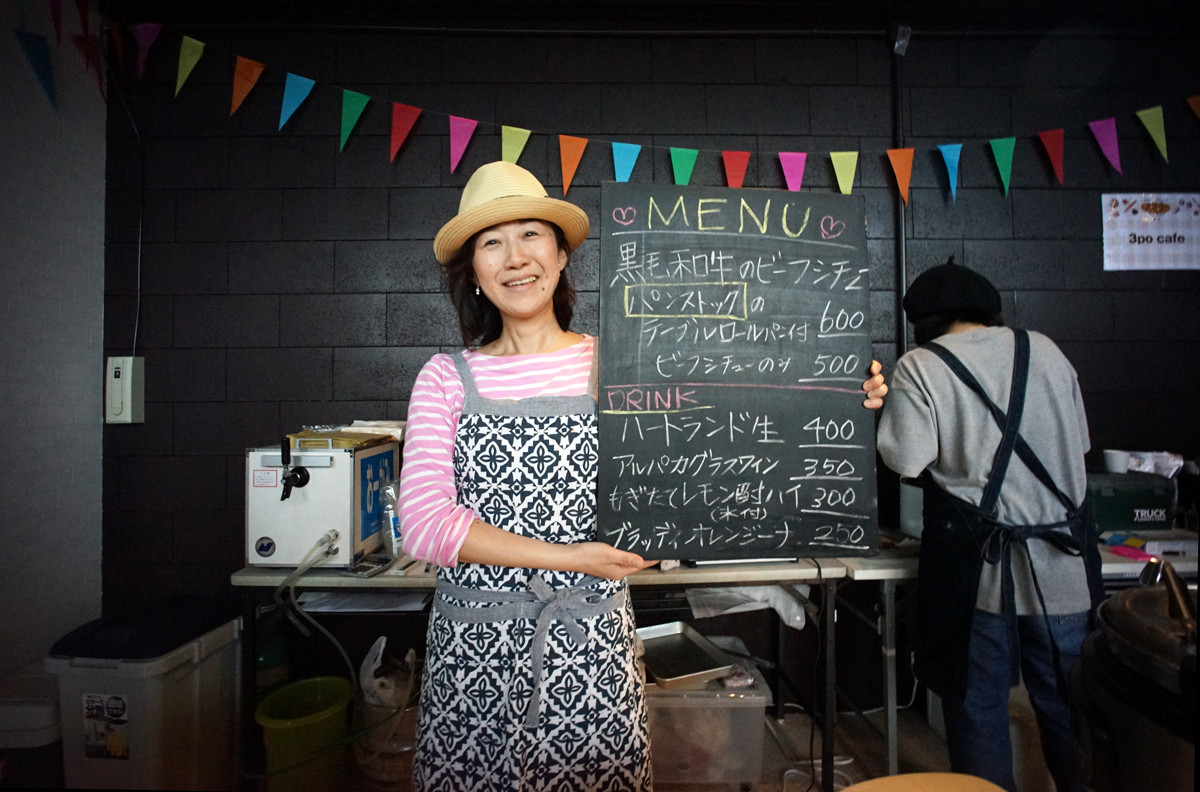 MENU
黒毛和牛のビーフシチュー
パンストックの
テーブルロールパン付 600
ビーフシチューのみ 500
DRINK
ハートランド生 400
アルパカグラスワイン 350
もぎたてレモン酎ハイ 300
(氷付)
ブラッディオレンジーナ 250
3po cafe
TRUCK